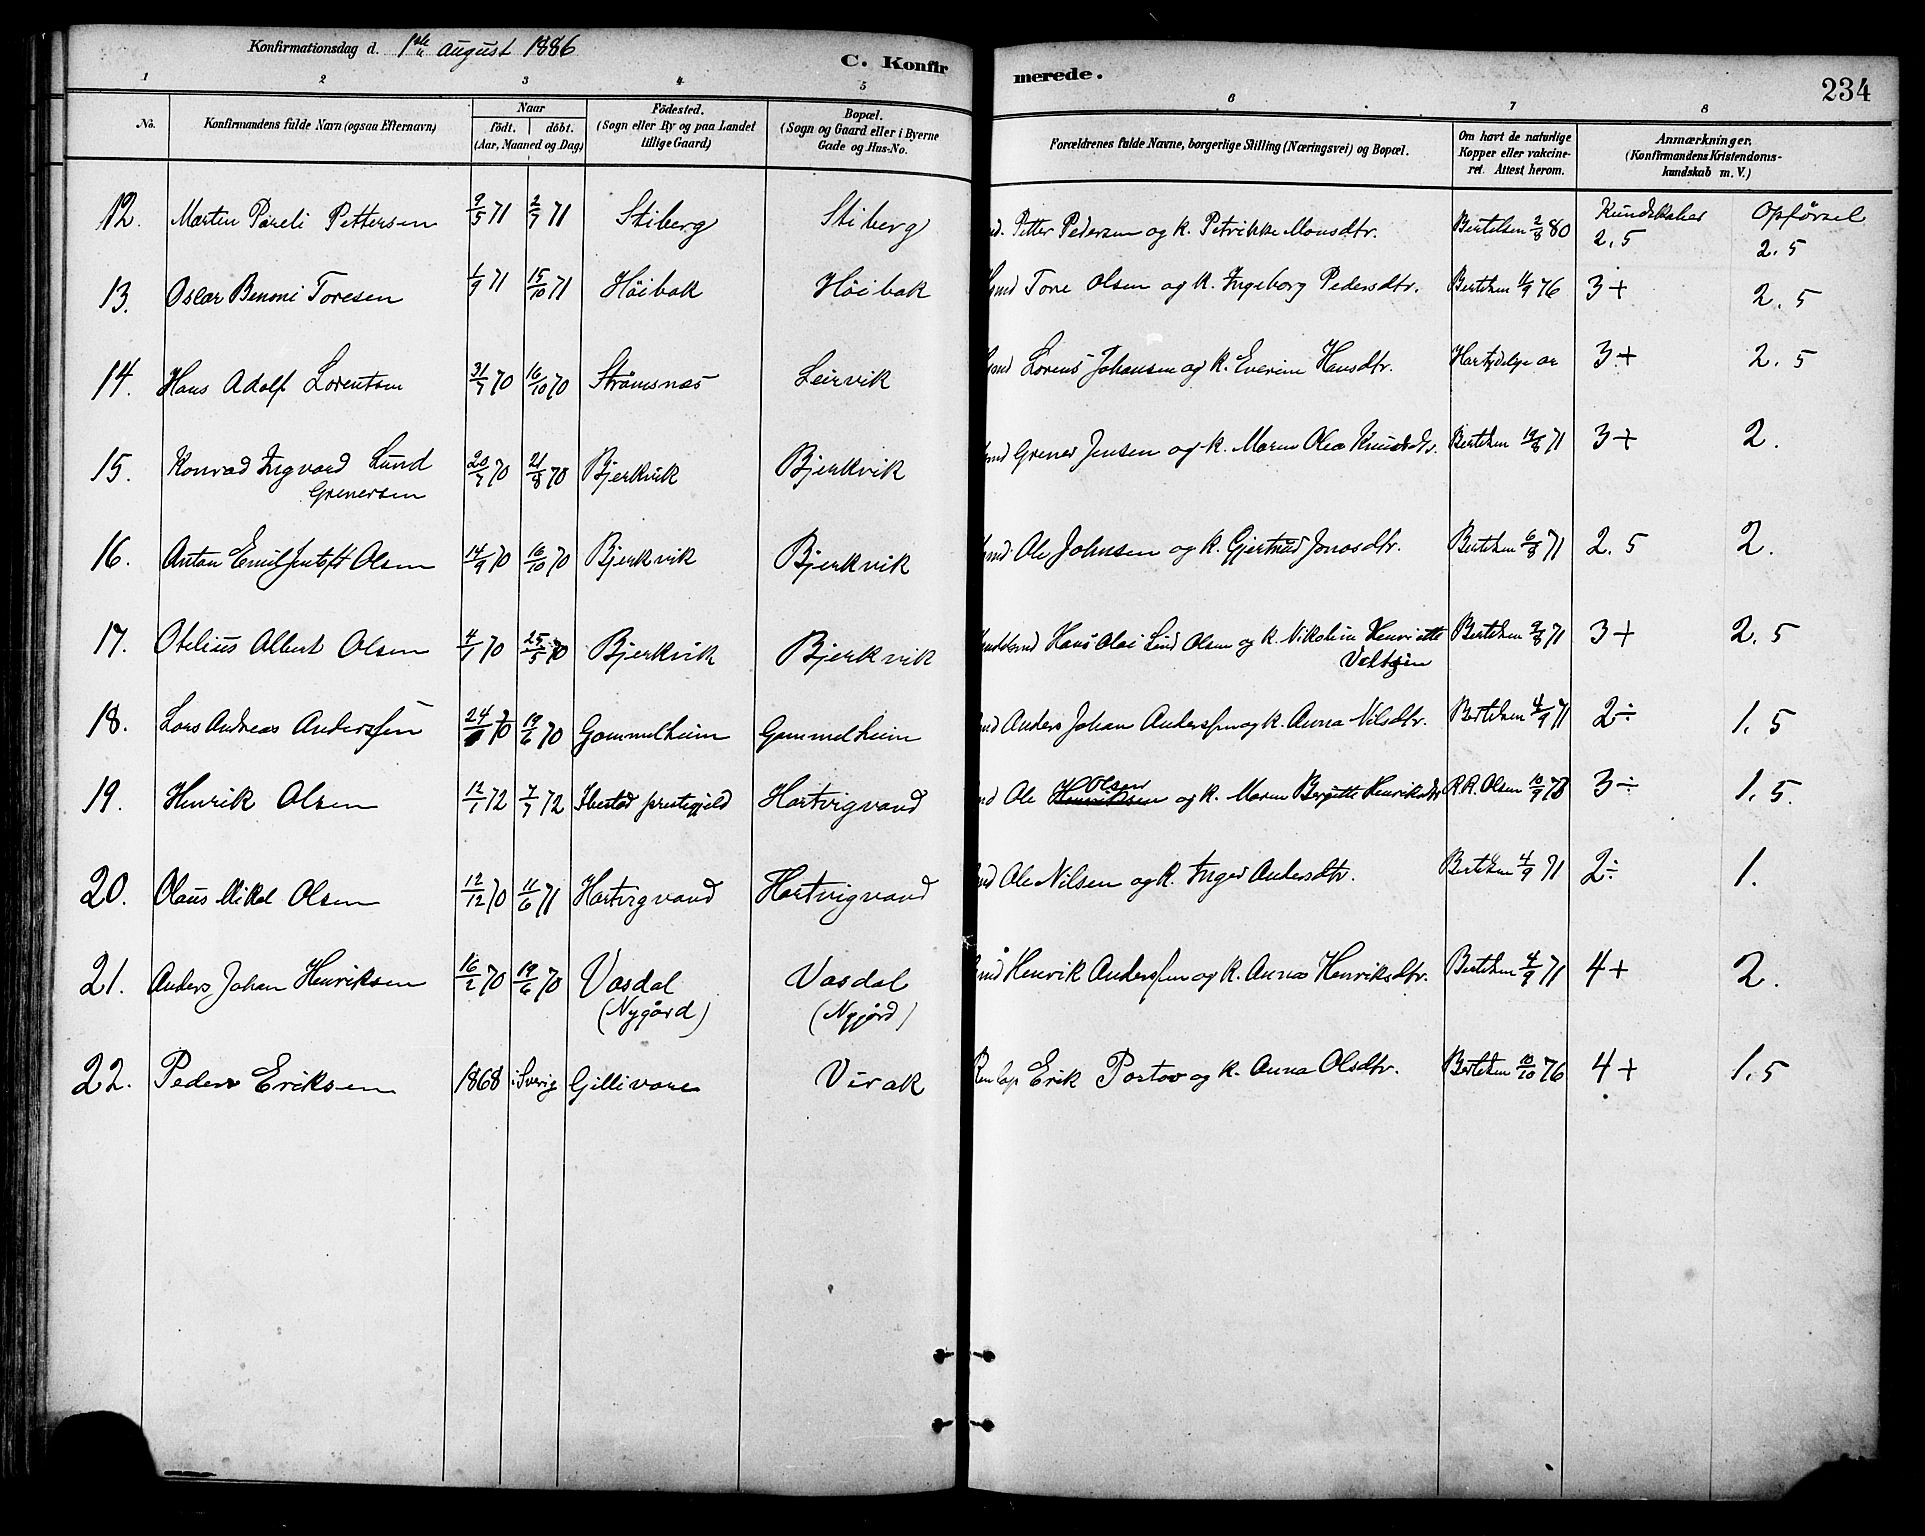 Konfirmationsdag d. 1ste August 1886
C. Konfirmerede.
234
1 2 3 4 5 6 7 8
No.
Konfirmandens fulde Navn (ogsaa Efternavn)
Naar
födt. | döbt.
(Aar, Maaned og Dag)
Födested.
(Sogn eller By og paa Landet
tillige Gaard)
Bopæl.
(Sogn og Gaard eller i Byerne
Gade og Hus-No.
Forældrenes fulde Navne, borgerlige Stilling (Næringsvei) og Bopæl.
Om havt de naturlige
Kopper eller vakcine-
ret. Attest herom.
Anmærkninger.
(Konfirmandens Kristendoms-
kundskab m. V.)
Kundskaber Opførsel
12. Martin Pareli Pettersen 9/5 71 2/7 71 Stiberg Stiberg Petter Pedersen og k. Petrikke Monsdtr. Bertelsen 2/8 80 2.5 2.5
13. Oskar Benoni Toresen 1/9 71 15/10 71 Höibak Höibak Tore Olsen og k. Ingeborg Pedersdtr. Bertelsen 11/9 76 3+ 2.5
14. Hans Adolf Lorentsen 31/7 70 16/10 70 Strömsnas Leirvik Lorens Johansen og k. Everine Hansdtr. Har tydelige ar 3+ 2.5
15. Konrad Ingvard Lund
Grenersen 20/7 70 21/8 70 Bjerkvik Bjerkvik Grener Jensen og k. Maren Olea Knudsdtr. Bertelsen 19/8 71 3+ 2.
16. Anton Emil Jentoft Olsen 14/9 70 16/10 70 Bjerkvik Bjerkvik Ole Johnsen og k. Gjertrud Jonasdtr. Bertelsen 6/8 71 2.5 2.
17. Otelius Albert Olsen 4/1 70 25/5 70 Bjerkvik Bjerkvik Hans Olai Lind Olsen og k. Nikoline Henriette Bertelsen 2/8 71 3+ 2.5
18. Lars Andreas Anderssen 24/ 70 19/6 70 Gammelheim Gammelheim Anders Johan Anderssen og k. Anna Nilsdtr. Bertelsen 4/9 71 2÷ 1.5
19. Henrik Olsen 12/1 72 7/7 72 Ibestad prestegjeld Hartvigvand Ole Henriksen Olsen og k. Maren Bergitte Henriksdtr R.R. Olsen 10/9 78 3÷ 1.5.
20. Olaus Mikal Olsen 12/12 70 11/6 71 Hartvigvand Hartvigvand Ole Nilsen og k. Inger Andersdtr. Bertelsen 4/9 71 2÷ 1.
21. Anders Johan Henriksen 16/2 70 19/6 70 Vasdal
(Nygård) Vasdal
(Nyjord) Henrik Anderssen og k. Anna Henriksdtr. Bertelsen 4/9 71 4+ 2.
22. Peder Eriksen 1868 i Sverig Gillivare Virak Renlap Erik Portov og k. Anna Olsdtr. Bertelsen 10/10 76 4+ 1.5